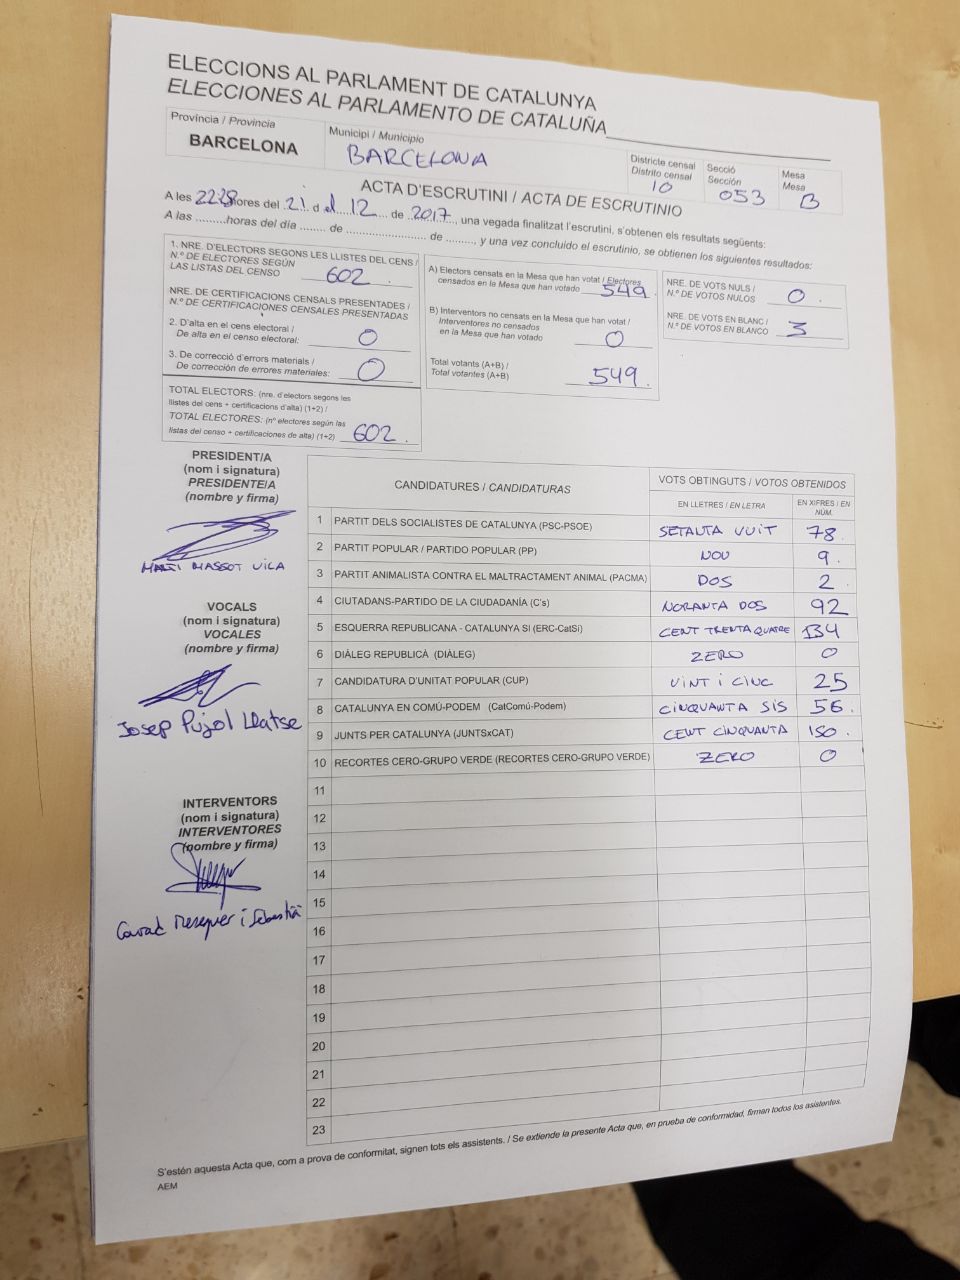 ELECCIONS AL PARLAMENT DE CATALUNYA
ELECCIONES AL PARLAMENTO DE CATALUÑA
Província / Provincia
BARCELONA
Municipi / Municipio
BARCELONA
Districte censal
Distrito censal
10
Secció
Sección
053
Mesa
Mesa
B
ACTA D'ESCRUTINI / ACTA DE ESCRUTINIO
A les 22:28 hores del 21 d el 12 de 2017, una vegada finalitzat l'escrutini, s'obtenen els resultats següents:
A las .........horas del día ........ de ......................... de ........., y una vez concluido el escrutinio, se obtienen los siguientes resultados:
1. NRE. D'ELECTORS SEGONS LES LLISTES DEL CENS /
N.º DE ELECTORES SEGÚN
LAS LISTAS DEL CENSO 602
NRE. DE CERTIFICACIONS CENSALS PRESENTADES /
N.º DE CERTIFICACIONES CENSALES PRESENTADAS
2. D'alta en el cens electoral /
De alta en el censo electoral: 0
3. De correcció d'errors materials /
De corrección de errores materiales: 0
TOTAL ELECTORS: (nre. d'electors segons les
llistes del cens + certificacions d'alta) (1+2) /
TOTAL ELECTORES: (nº electores según las
listas del censo + certificaciones de alta) (1+2) 602.
A) Electors censats en la Mesa que han votat / Electores
censados en la Mesa que han votado 549.
B) Interventors no censats en la Mesa que han votat /
Interventores no censados
en la Mesa que han votado 0
Total votants (A+B) /
Total votantes (A+B) 549.
NRE. DE VOTS NULS /
N.º DE VOTOS NULOS 0.
NRE. DE VOTS EN BLANC /
N.º DE VOTOS EN BLANCO 3
PRESIDENT/A
(nom i signatura)
PRESIDENTE/A
(nombre y firma)
MASSOT VILA
VOCALS
(nom i signatura)
VOCALES
(nombre y firma)
Josep Pujol Llatse
INTERVENTORS
(nom i signatura)
INTERVENTORES
(nombre y firma)
Meseguer i Sebastià
CANDIDATURES / CANDIDATURAS
VOTS OBTINGUTS / VOTOS OBTENIDOS
EN LLETRES / EN LETRA
EN XIFRES / EN NÚM.
1 PARTIT DELS SOCIALISTES DE CATALUNYA (PSC-PSOE) SETANTA VUIT 78.
2 PARTIT POPULAR / PARTIDO POPULAR (PP) NOU 9.
3 PARTIT ANIMALISTA CONTRA EL MALTRACTAMENT ANIMAL (PACMA) DOS 2.
4 CIUTADANS-PARTIDO DE LA CIUDADANÍA (C's) NORANTA DOS 92
5 ESQUERRA REPUBLICANA - CATALUNYA SÍ (ERC-CatSí) CENT TRENTA QUATRE 134
6 DIÀLEG REPUBLICÀ (DIÀLEG) ZERO 0
7 CANDIDATURA D'UNITAT POPULAR (CUP) VINT I CINC 25
8 CATALUNYA EN COMÚ-PODEM (CatComú-Podem) CINQUANTA SIS 56.
9 JUNTS PER CATALUNYA (JUNTSxCAT) CENT CINQUANTA 150.
10 RECORTES CERO-GRUPO VERDE (RECORTES CERO-GRUPO VERDE) ZERO 0
11
12
13
14
15
16
17
18
19
20
21
22
23
S'estén aquesta Acta que, com a prova de conformitat, signen tots els assistents. / Se extiende la presente Acta que, en prueba de conformidad, firman todos los asistentes.
AEM